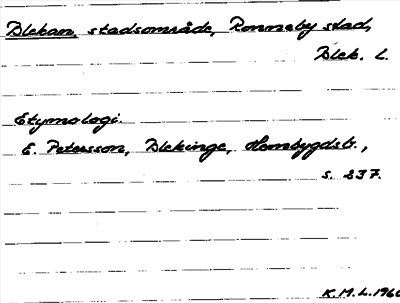 Blekan, stadsområde, Ronneby stad,
Blek. L.
Etymologi.
E. Petersson, Blekinge, Hembygdsb.,
s. 237.
K.M.L. 1960